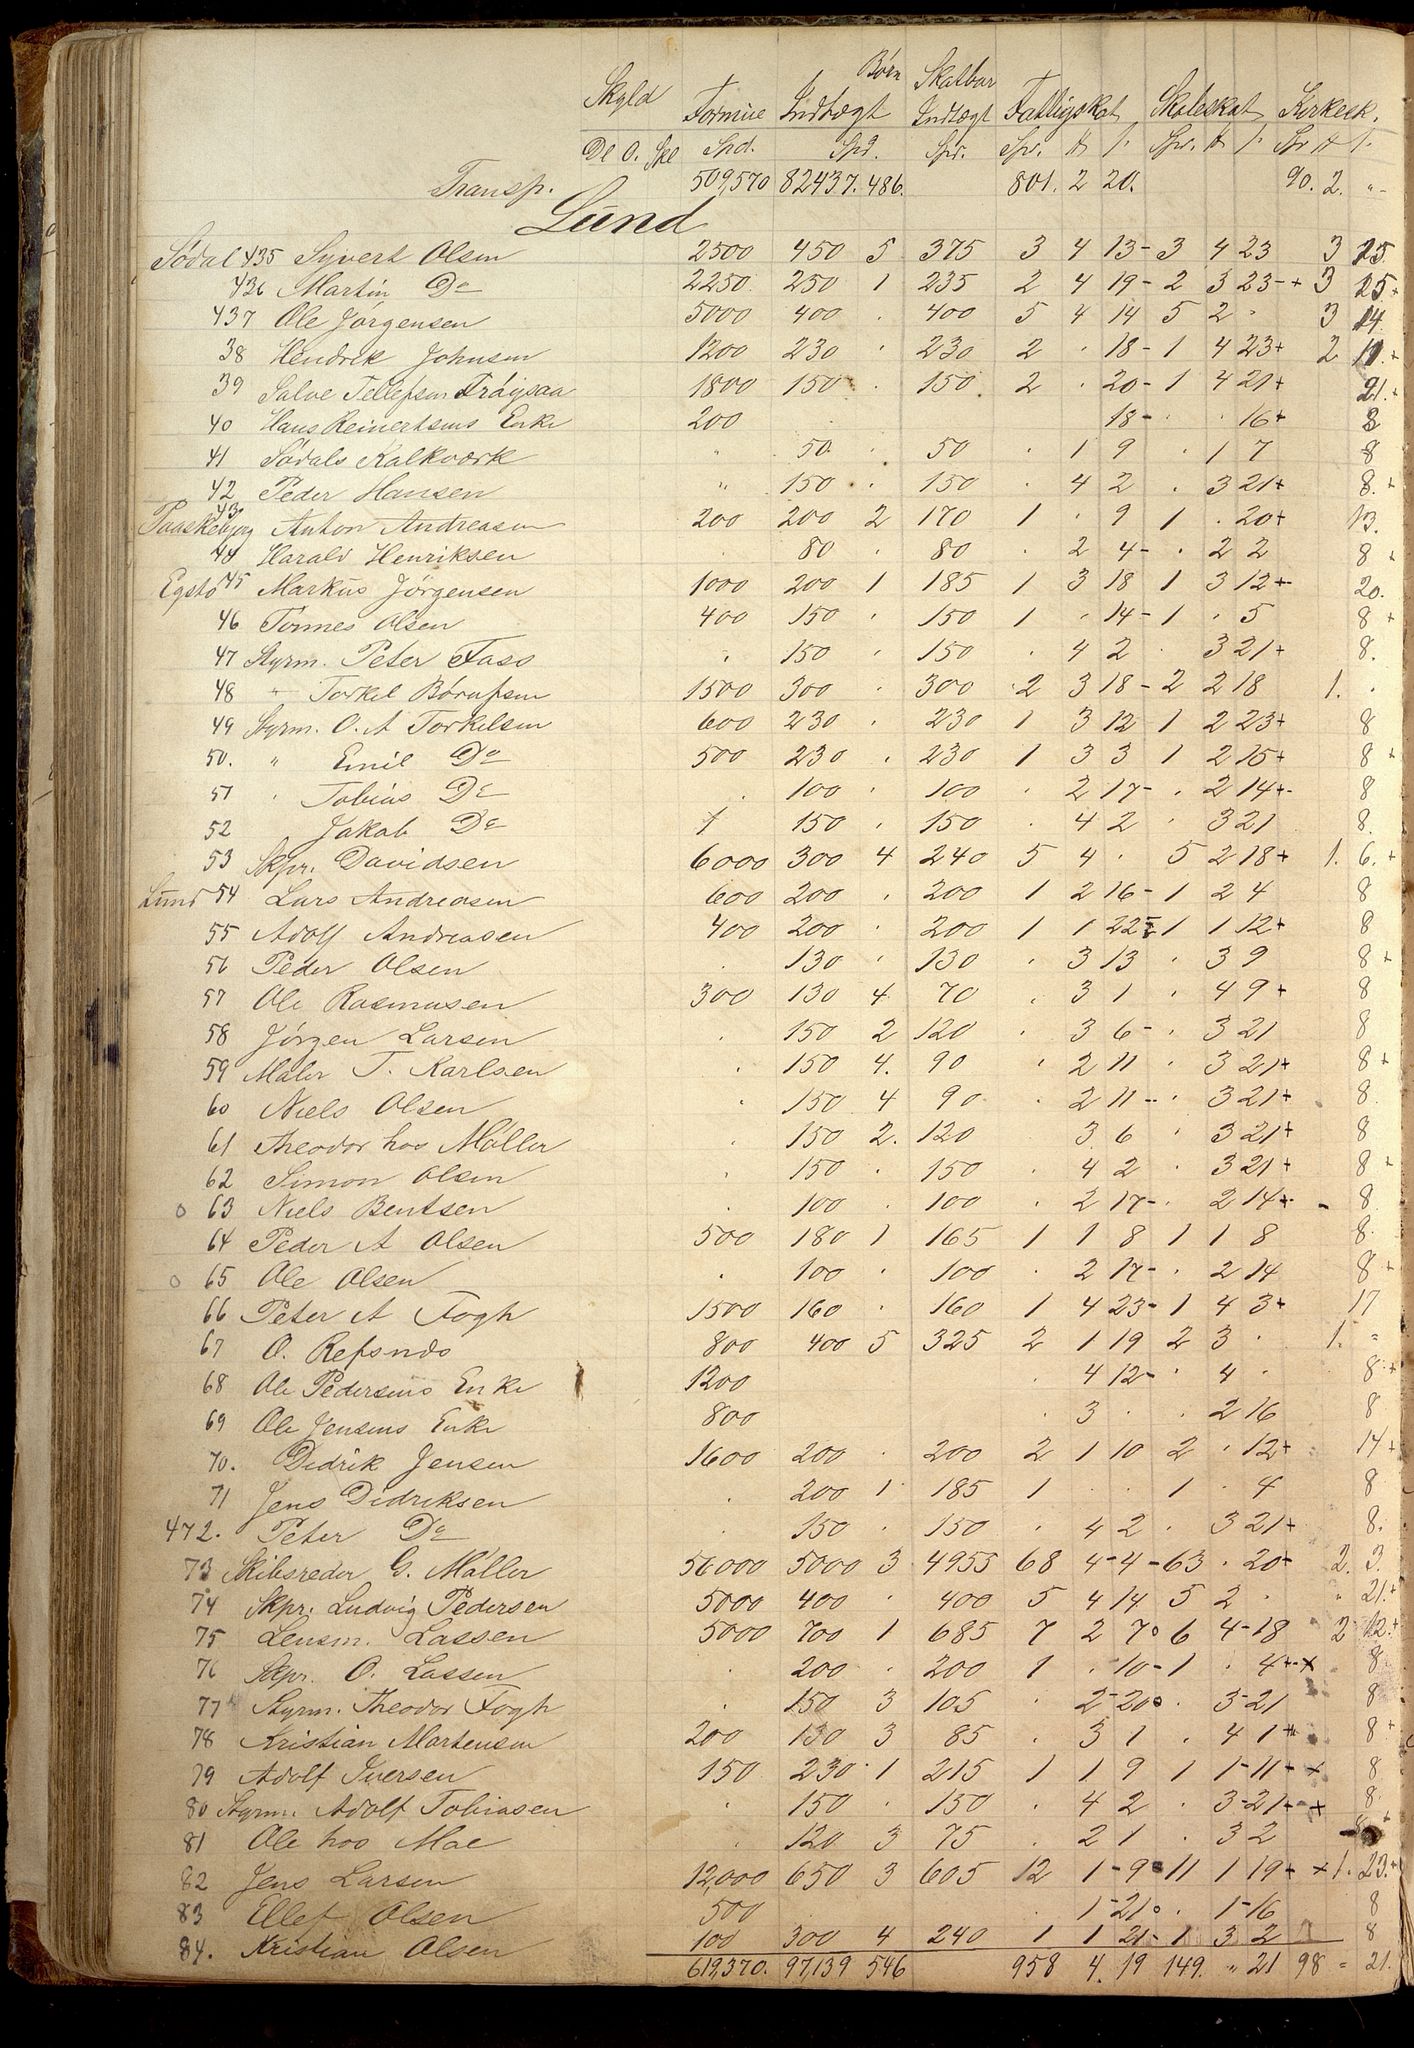 Skyld Formue Indtægt Børn Skatbar Indtægt Fattigskat Skoleskat Kirkesk.
Dl O. Skl Spd. Spd. Spr. Spr. # /. Spr. # /. Spr # /.
Transp. 509,570 82437. 486. 801. 2 20. 90. 2. "-
Lund
Sødal 435 Syvert Olsen 2500 450 5 375 3 4 13- 3 4 23 3 25
436 Martin Do 2250 250 1 235 2 4 19- 2 3 23-+ 3 25+
437 Ole Jørgensen 5000 400 . 400 5 4 14 5 2 . 3 14
38 Hendrik Johnsen 1200 230 . 230 2 . 18- 1 4 23+ 2 11.+
39 Salve Tellefsen Trägsaa 1800 150 . 150 2 . 20- 1 4 21+ 21.+
40 Hans Reinertsens Enke 200 18- . . 16+ 8
41 Sødals Kalkværk " 50 . 50 . 1 9 . 1 7 8
42 Peder Hansen " 150 . 150 . 4 2 . 3 21+ 8.+
Paaskebjerg 43 Anton Andreasen 200 200 2 170 1 . 9 1 . 20+ 13.
44 Harald Henriksen . 80 . 80 . 2 4- . 2 2 8 +
Egstø 45 Markus Jørgensen 1000 200 1 185 1 3 18 1 3 12+ 20.
46 Tønnes Olsen 400 150 . 150 1 . 14- 1 . 5 8 +
47 Styrm. Peter Faso . 150 . 150 . 4 2 . 3 21+ 8.
48 " Torkel Børufsen 1500 300 . 300 2 3 18- 2 2 18 1. .
49 Styrm. O. A Torkelsen 600 230 . 230 1 3 12 1 2 23+ 8
50. " Emil Do 500 230 . 230 1 3 3 1 2 15+ 8 +
51 . Tobias Do . 100 . 100 . 2 17- . 2 14+ 8
52 Jakob Do 1 150 . 150 . 4 2 . 3 21 8.
53 Skpr. Davidsen 6000 300 4 240 5 4 . 5 2 18+ 1. 6.+
Lund 54 Lars Andreasen 600 200 . 200 1 2 16- 1 2 4 8
55 Adolf Andreasen 400 200 . 200 1 1 22- 1 1 12+ 8
56 Peder Olsen . 130 . 130 . 3 13 . 3 9 8 +
57 Ole Rasmusen 300 130 4 70 . 3 1 . 4 9+ 8
58 Jørgen Larsen . 150 2 120 . 3 6- . 3 21 8
59 Maler T. Karlsen . 150 4. 90 . 2 11 . 3 21+ 8 +
60 Niels Olsen . 150 4 90 . 2 11- . 3 21+ 8
61 Theodor hos Møller . 150 2. 120 3 6 . 3 21+ 8
62 Simon Olsen . 150 . 150 . 4 2 . 3 21+ 8 +
o 63 Niels Bentsen . 100 . 100 . 2 17- . 2 14+ - 8
64 Peder A Olsen 500 180 1 165 1 1 8 1 1 8 8.
o 65 Ole Olsen . 100 . 100 . 2 17- . 2 14 8 +
66 Peter A Fogh 1500 160 . 160 1 4 23- 1 4 3+ 17
67 O. Refsnds 800 400 5 325 2 1 19 2 3 . 1. "
68 Ole Pedersens Enke 1200 . 4 12- . 4 . 8 +
69 Ole Jensens Enke 800 . 3 . . 2 16 8
70. Didrik Jensen 1600 200 . 200 2 1 10 2 . 12+ 14+
71 Jens Didriksen . 200 1 185 1 . . 1 . 4 8
472. Peter Do . 150 . 150 . 4 2 . 3 21+ 8.
73 Skibsreder G. Møller 56000 5000 3 4955 68 4-4- 63 . 20- 2. 3.
74 Skpr. Ludvig Pedersen 5000 400 . 400 5 4 14 5 2 . " 21.+
75 Lensm. Lassen 5000 700 1 685 7 2 7o 6 4-18 2 12.+
76 Skpr. O. Lassen . 200 . 200 1 . 10- 1 . 4+-x 8
77 Styrm. Theodor Fogh . 150 3 105 . 2-20o . 3-21 8
78 Kristian Mortensen 200 130 3 85 . 3 1 . 4 1+ 8 +
79 Adolf Iversen 150 230 . 1 215 1 1 9 1 1-11-x 8
80 Styrm. Adolf Tobiasen . 150 . 150 . 4 2 . 3-21-+ 8.
81 Ole hos Moe . 120 3 75 . 2 1 . 3 2
82 Jens Larsen 12,000 650 3 605 12 1-9 11 1 19+ x1. 23.+
83 Ellef Olsen 500 . 1-21o . 1-16 8
84. Kristian Olsen 100 300 4 240 1 1 21- 1 3 2 8
619,370. 97,139 546 958 4. 19 149. " 21 98 " 21.